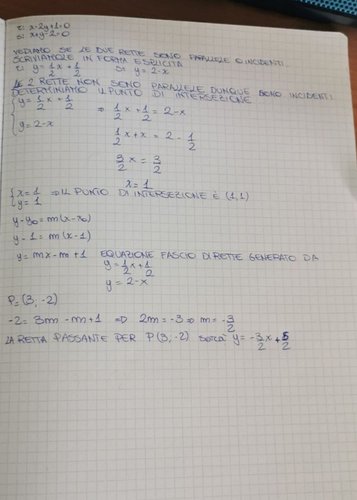 r: x-2y+1=0
s: x+y-2=0
VEDIAMO SE LE DUE RETTE SONO PARALLELE O INCIDENTI
SCRIVIAMOLE IN FORMA ESPLICITA
r: y=1/2x+1/2 s: y=2-x
LE 2 RETTE NON SONO PARALLELE DUNQUE SONO INCIDENTI.
DETERMINIAMO IL PUNTO DI INTERSEZIONE
{y=1/2x+1/2 ⇒ 1/2x+1/2=2-x
{y=2-x
1/2x+x=2-1/2
3/2x=3/2
x=1
{x=1 ⇒ IL PUNTO DI INTERSEZIONE È (1,1)
{y=1
y-y0=m(x-x0)
y-1=m(x-1)
y=mx-m+1 EQUAZIONE FASCIO DI RETTE GENERATO DA
y=1/2x+1/2
y=2-x
P=(3;-2)
-2=3m-m+1 ⇒ 2m=-3 ⇒ m=-3/2
LA RETTA PASSANTE PER P(3,-2) sarà y=-3/2x+5/2